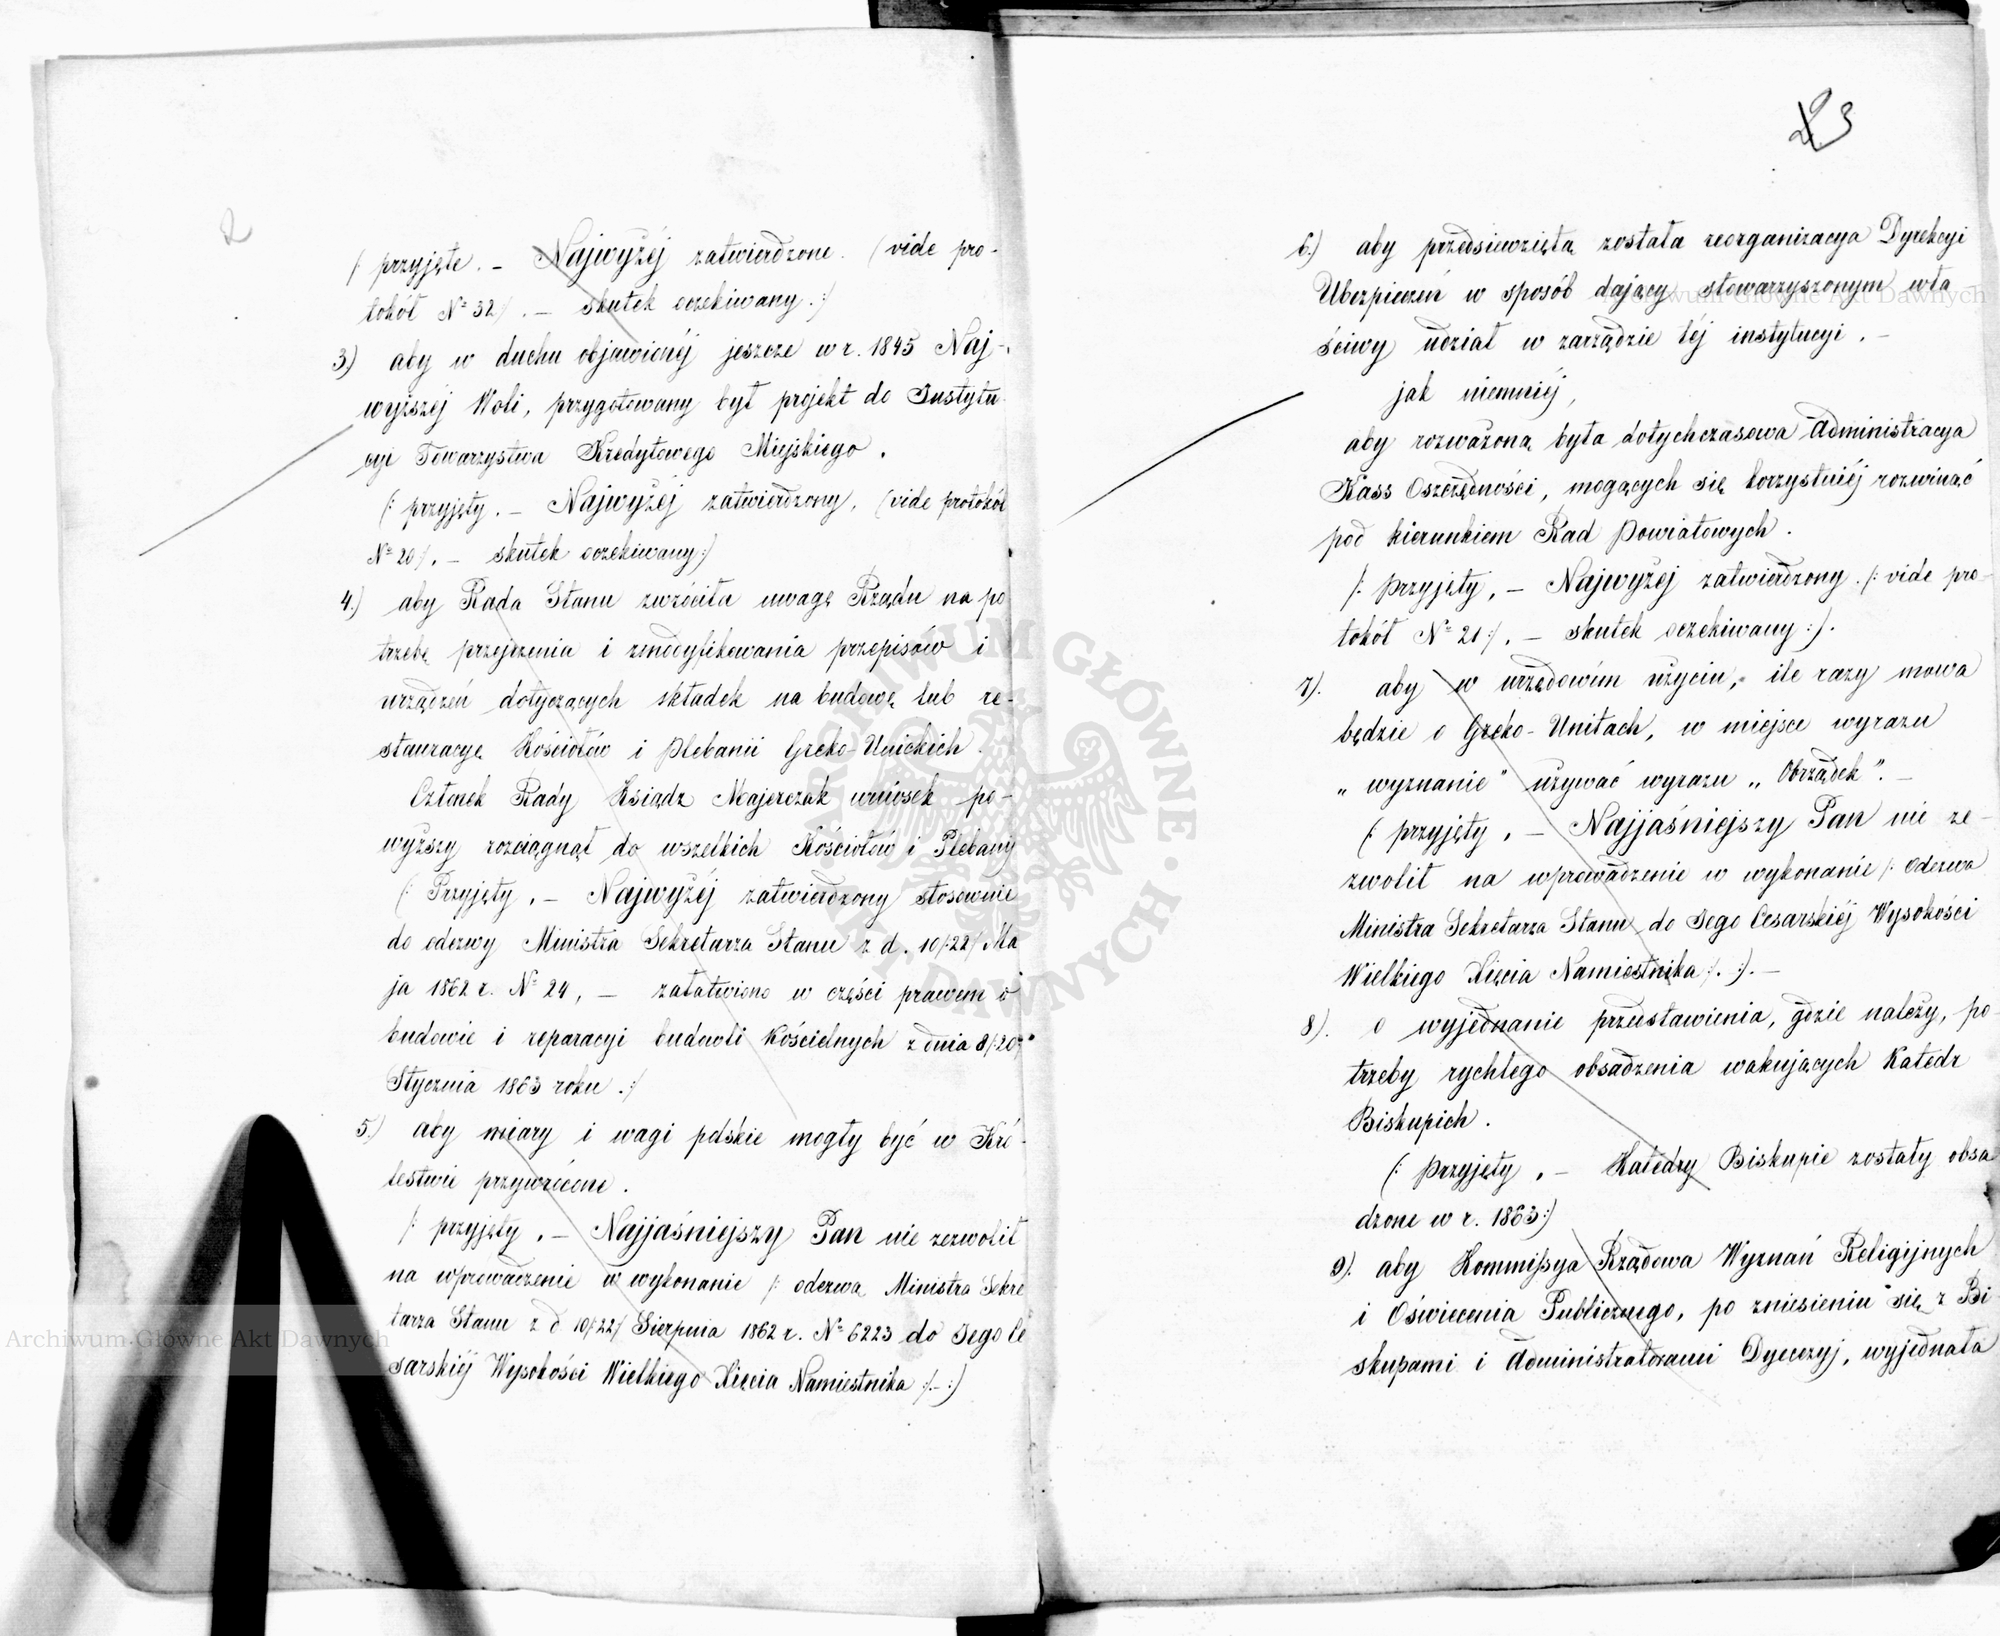 2
/: przyjęte. – Najwyżéj zatwierdzone. (vide pro-
tokół Nº 32/. – skutek oczekiwany. :/
3) aby w duchu objawionéj jeszcze w r. 1845 Naj-
wyższéj Woli, przygotowany był projekt do Instytu
cyi Towarzystwa Kredytowego Miejskiego.
(: przyjęty. – Najwyżéj zatwierdzony. (vide protokół
Nº 20/. – skutek oczekiwany :/
4.) aby Rada Stanu zwróciła uwagę Rządu na po
trzebę przejrzenia i zmodyfikowania przepisów i
urządzeń dotyczących składek na budowę lub re-
stauracyę Kościołów i Plebanii Greko-Unickich.
Członek Rady Ksiądz Majerczak wniosek po-
wyższy rozciągnął do wszelkich Kościołów i Plebanij
(: Przyjęty. – Najwyżéj zatwierdzony stosownie
do odezwy Ministra Sekretarza Stanu z d. 10/22/ Ma
ja 1862 r. Nº 24, – załatwiono w części prawem o
budowie i reparacyi budowli kościelnych z dnia 8/20
Stycznia 1863 roku. :/
5.) aby miary i wagi polskie mogły być w Kró-
lestwie przywrócone.
/: przyjęty. – Najjaśniejszy Pan nie zezwolił
na wprowadzenie w wykonanie /: odezwa Ministra Sekre
tarza Stanu z d 10/22/ Sierpnia 1862 r. Nº 6223 do Jego Ce
sarskiéj Wysokości Wielkiego Xięcia Namiestnika :/–:)
3
6.) aby przedsięwziętą została reorganizacya Dyrekcyi
Ubezpieczeń w sposób dający stowarzyszonym wła
ściwy udział w zarządzie téj instytucyi. –
jak niemniéj,
aby rozważoną była dotychczasowa Administracya
Kass Oszczędności, mogących się korzystniéj rozwinąć
pod kierunkiem Rad Powiatowych.
/: Przyjęty. – Najwyżej zatwierdzony. /: vide pro-
tokół Nº 21 :/. – skutek oczekiwany :/.
7). aby w urzędowém użyciu, ile razy mowa
będzie o Greko-Unitach, w miejsce wyrazu
„wyznanie” używać wyrazu „Obrządek”. –
(: przyjęty. – Najjaśniejszy Pan nie ze-
zwolił na wprowadzenie w wykonanie /: Odezwa
Ministra Sekretarza Stanu do Jego Cesarskiéj Wysokości
Wielkiego Xięcia Namiestnika :/. :). –
8). o wyjednanie przedstawienia, gdzie należy, po-
trzeby rychłego obsadzenia wakujących Katedr
Biskupich.
(: Przyjęty. – Katedry Biskupie zostały obsa
dzone w r. 1863 :)
9). aby Kommissya Rządowa Wyznań Religijnych
i Oświecenia Publicznego, po zniesieniu się z Bi
skupami i Administratorami Dyecezyj, wyjednała
Archiwum Główne Akt Dawnych
Archiwum Główne Akt Dawnych
ARCHIWUM GŁÓWNE AKT DAWNYCH